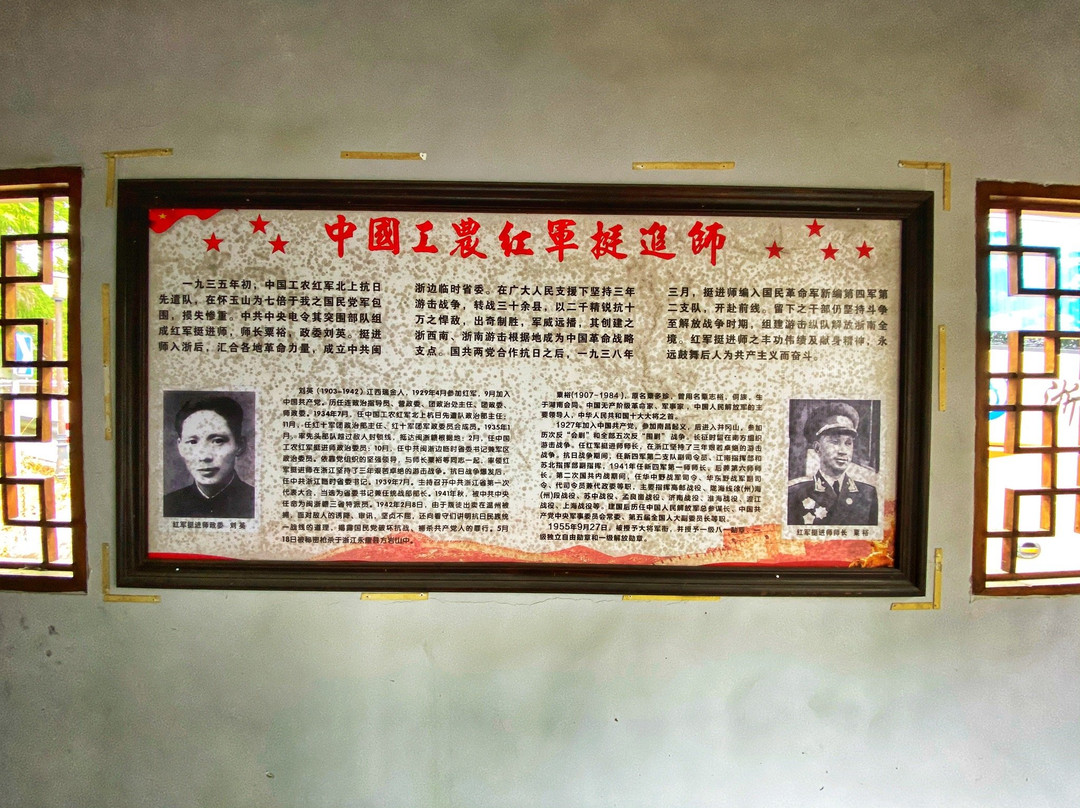 中國工農红軍挺進師
一九三五年初，中国工农红军北上抗日
先遣队，在怀玉山为七倍于我之国民党军包
围，损失惨重。中共中央电令其突围部队组
成红军挺进师，师长粟裕，政委刘英。挺进
师入浙后，汇合各地革命力量，成立中共闽
浙边临时省委。在广大人民支援下坚持三年
游击战争，转战三十余县，以二千精锐抗十
万之悍敌，出奇制胜，军威远播，其创建之
浙西南、浙南游击根据地成为中国革命战略
支点。国共两党合作抗日之后，一九三八年
三月，挺进师编入国民革命军新编第四军第
二支队，开赴前线。留下之干部仍坚持斗争
至解放战争时期，组建游击纵队解放浙南全
境。红军挺进师之丰功伟绩及献身精神，永
远鼓舞后人为共产主义而奋斗。
刘英（1903-1942）江西瑞金人，1929年4月参加红军，9月加入
中国共产党。历任连政治指导员、营政委、团政治处主任、团政委、
师政委。1934年7月，任中国工农红军北上抗日先遣队政治部主任；
11月，任红十军团政治部主任、红十军团军政委员会成员。1935年1
月，率先头部队越过敌人封锁线，抵达闽浙赣根据地；2月，任中国
工农红军挺进师政治委员；10月，任中共闽浙边临时省委书记兼军区
政治委员。依靠党组织的坚强领导，与师长粟裕等同志一起，率领红
军挺进师在浙江坚持了三年艰苦卓绝的游击战争。抗日战争爆发后，
任中共浙江临时省委书记。1939年7月，主持召开中共浙江省第一次
代表大会，当选为省委书记兼任统战部部长。1941年秋，被中共中央
任命为闽浙赣三省特派员。1942年2月8日，由于叛徒出卖在温州被
捕。面对敌人的诱降、审讯，坚贞不屈，还向看守们讲明抗日民族统
一战线的道理，揭露国民党破坏抗战、摧杀共产党人的罪行。5月
18日被秘密枪杀于浙江永康县方岩山中。
红军挺进师政委 刘 英
粟裕(1907-1984)，原名粟多珍，曾用名粟志裕，侗族，生
于湖南会同。中国无产阶级革命家、军事家，中国人民解放军的主
要领导人，中华人民共和国十大大将之首。
1927年加入中国共产党，参加南昌起义，后进入井冈山。参加
历次反“会剿”和全部五次反“围剿”战争。长征时留在南方组织
游击战争，任红军挺进师师长，在浙江坚持了三年艰苦卓绝的游击
战争。抗日战争期间，任新四军第二支队副司令部、江南指挥部和
苏北指挥部副指挥，1941年任新四军第一师师长，后兼第六师师
长。第二次国共内战期间，任华中野战军司令、华东野战军副司
令、代司令员兼代政委等职，主要指挥高邮战役、陇海线徐(州)海
(州)段战役、苏中战役、孟良崮战役、济南战役、淮海战役、渡江
战役、上海战役等。建国后历任中国人民解放军总参谋长、中国共
产党中央军事委员会常委、第五届全国人大副委员长等职。
1955年9月27日，被授予大将军衔，并授予一级八一勋章、一
级独立自由勋章和一级解放勋章。
红军挺进师师长 粟 裕
浙